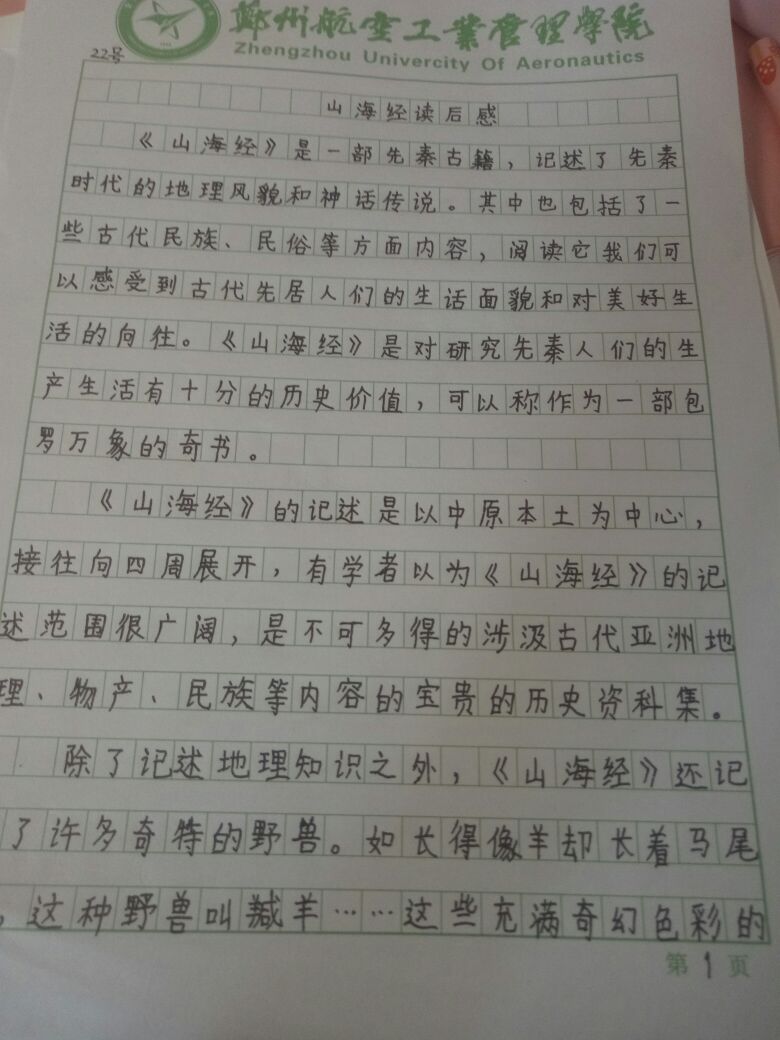 郑州航空工业管理学院
Zhengzhou Univercity Of Aeronautics
22号
山海经读后感
《山海经》是一部先秦古籍，记述了先秦
时代的地理风貌和神话传说。其中也包括了一
些古代民族、民俗等方面内容，阅读它我们可
以感受到古代先居人们的生话面貌和对美好生
活的向往。《山海经》是对研究先秦人们的生
产生活有十分的历史价值，可以称作为一部包
罗万象的奇书。
《山海经》的记述是以中原本土为中心，
接往向四周展开，有学者以为《山海经》的记
述范围很广阔，是不可多得的涉汲古代亚洲地
理、物产、民族等内容的宝贵的历史资科集。
除了记述地理知识之外，《山海经》还记
了许多奇特的野兽。如长得像羊却长着马尾
，这种野兽叫羬羊……这些充满奇幻色彩的
第1页